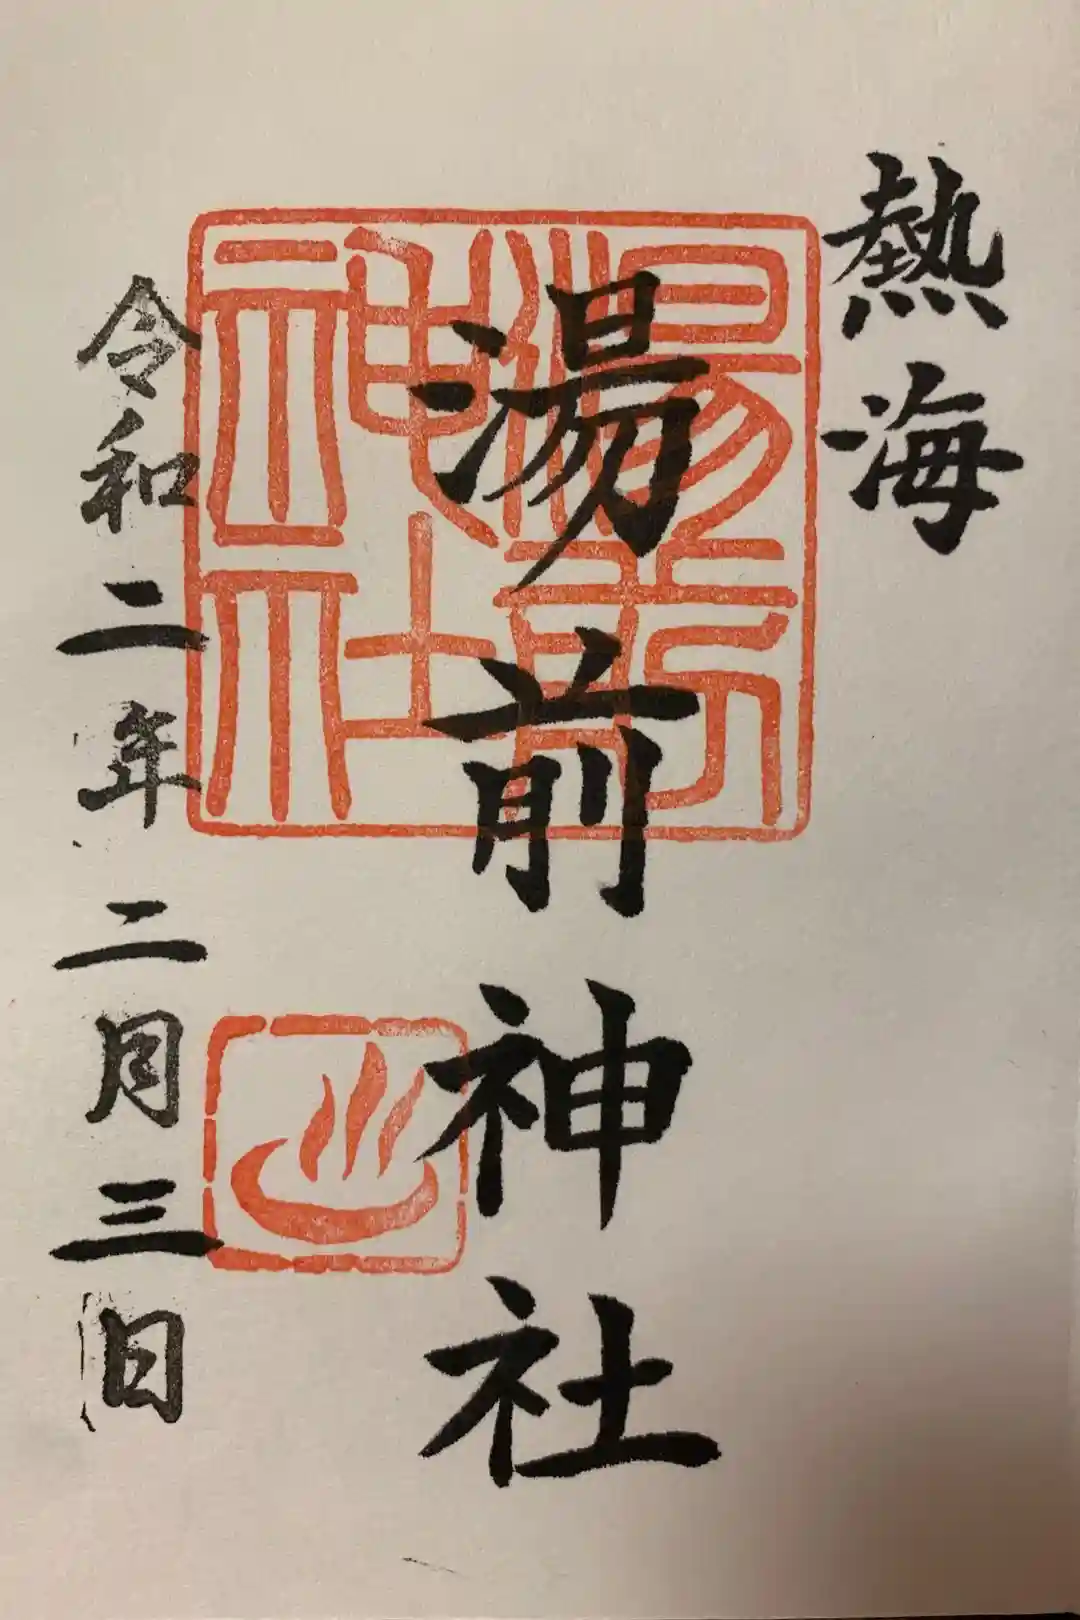 熱海
湯前神社
湯前
神社
令和二年二月三日